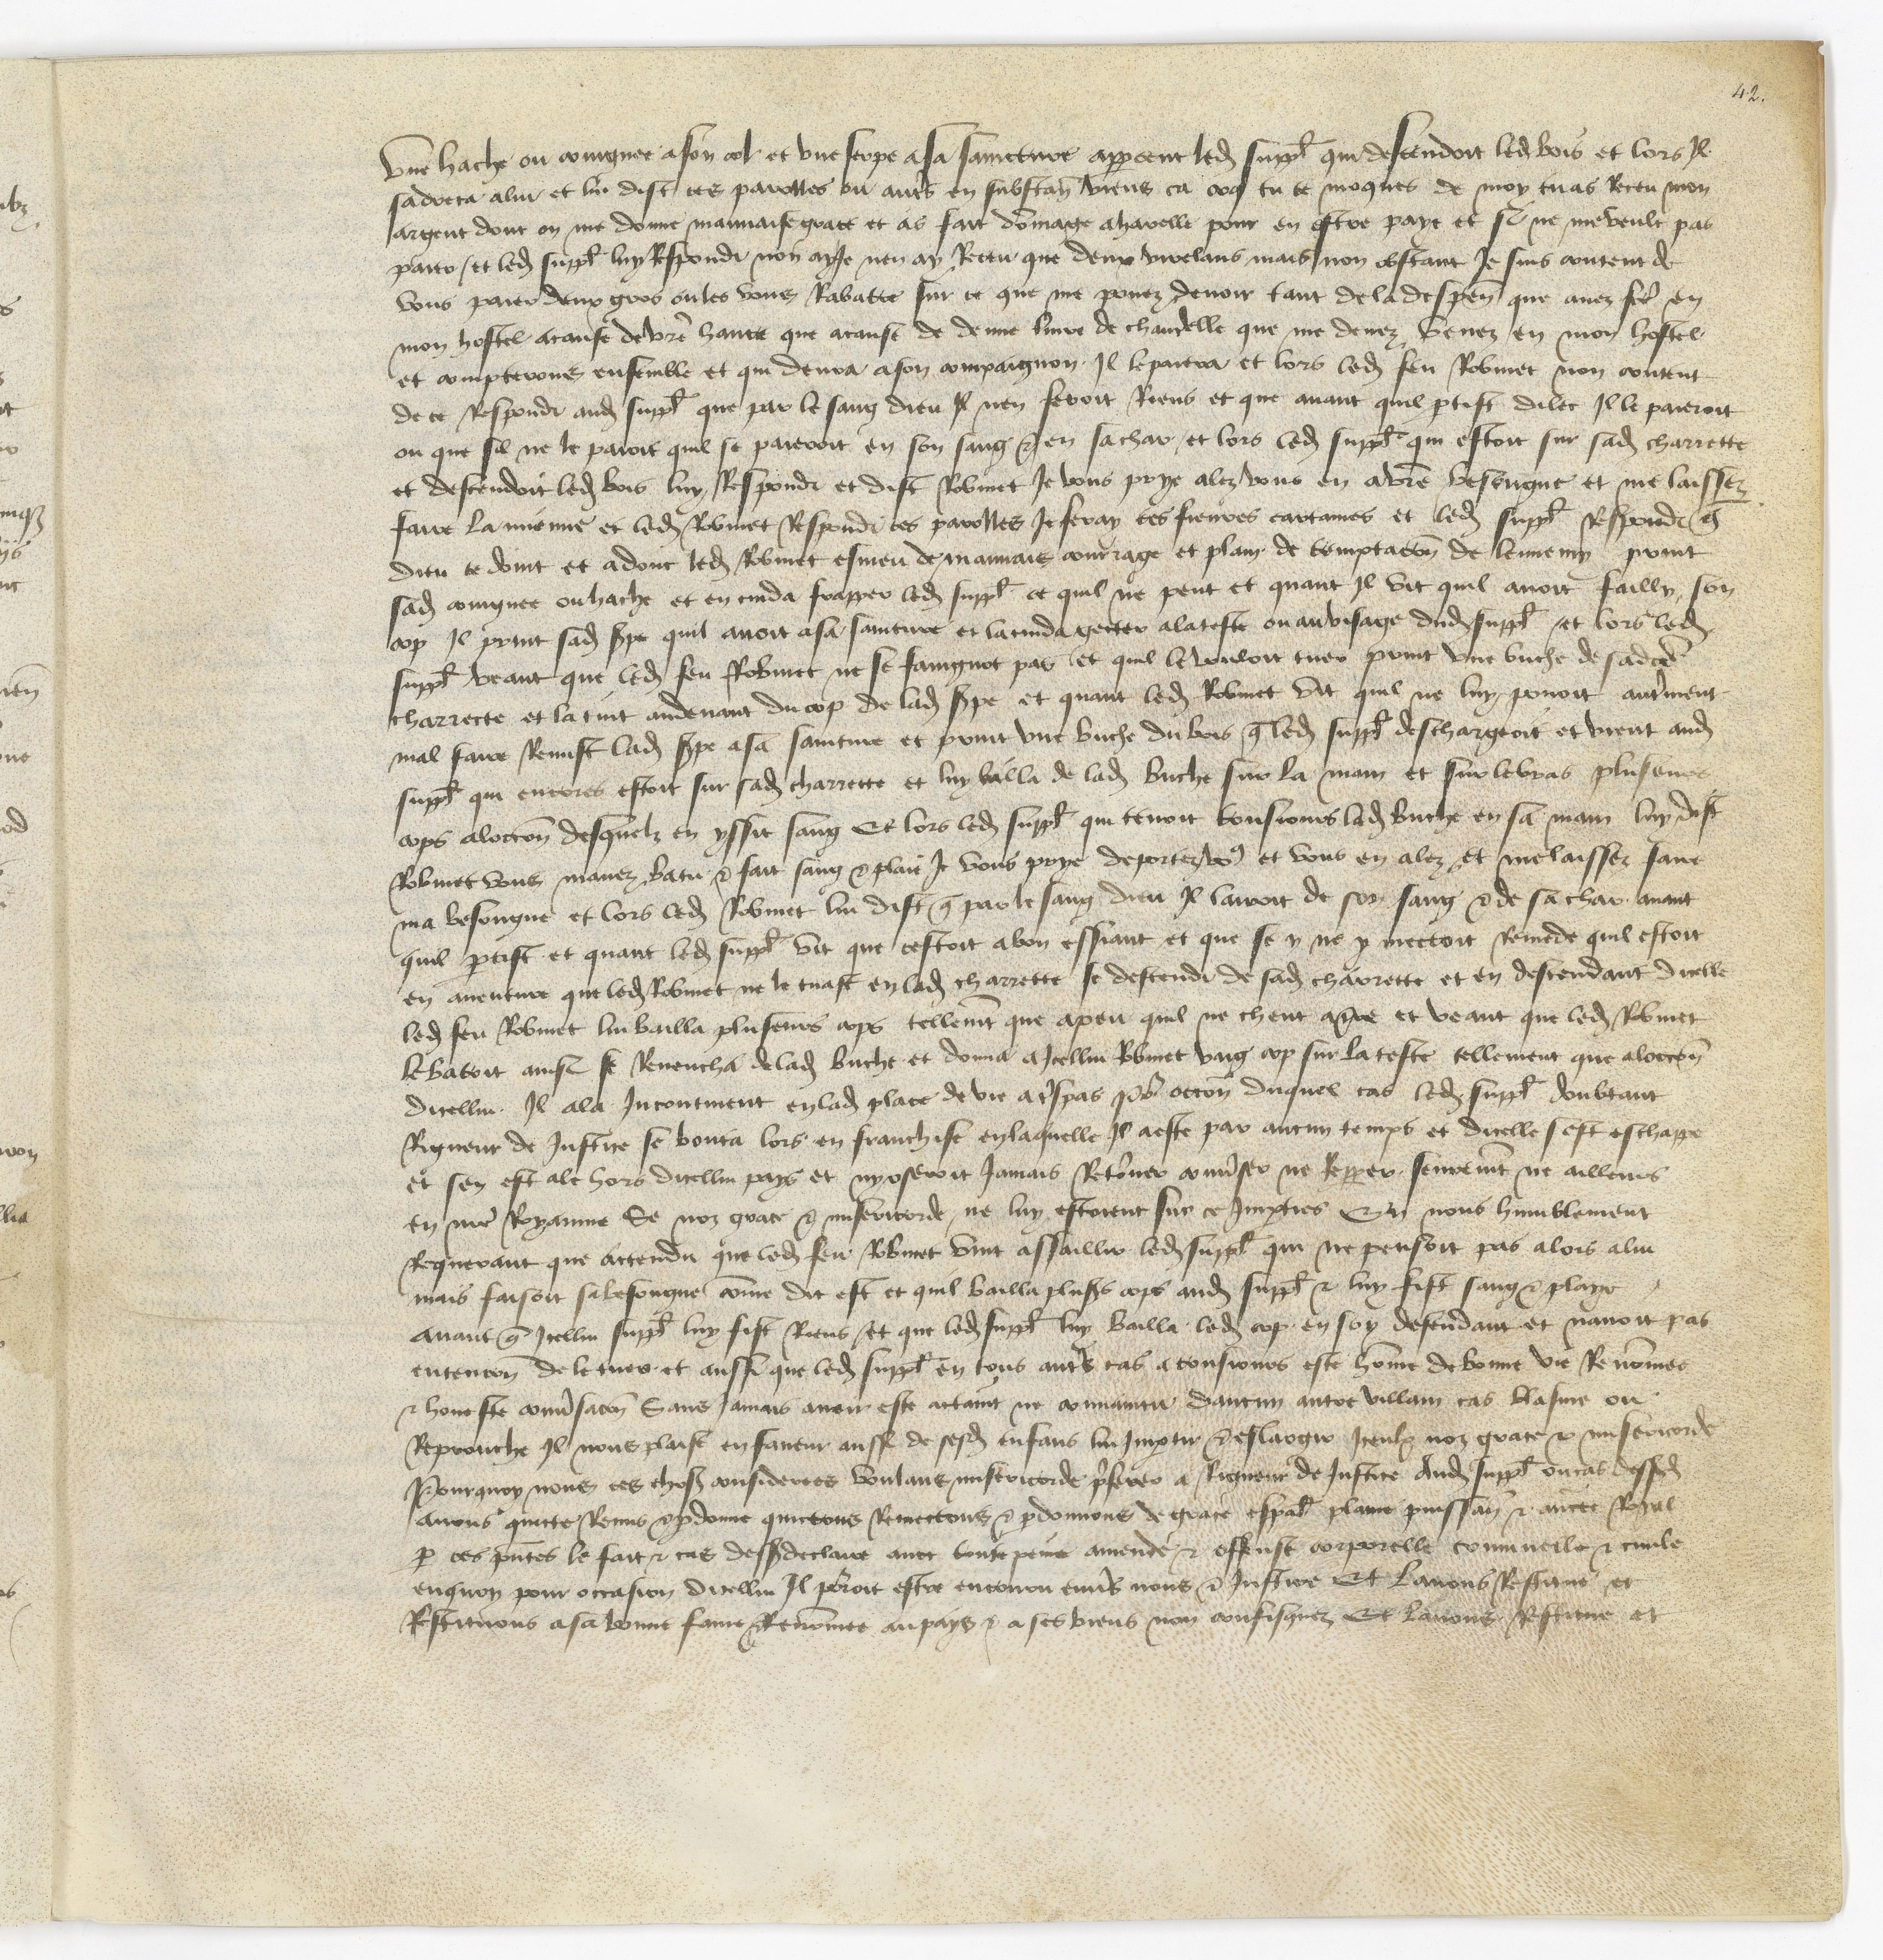 42.
Une hache ou congnee a son col et une serpe a sa saincture apperceut led suppl qui descendoit led bois et lors Il
sadreca a lui et lui dist ces parolles ou aut's en substan viens ca tu te moques de moy tu as receu mon
argent dont on me donne mauvaise grace et as fait dommage a harelle pour en estre paye et si ne me veulz pas
paier / et led suppl luy respondi non ay Je nen ay receu que deux virelans mais non obstant Je suis content de
vous paier deux gros ou les vous rabatre sur ce que me povez devoir tant de la despen que avez fce en
mon hostel a cause de vre hance que a cause de demie livre de chandelle que me devez venez en mon hostel
et compterons ensemble et qui devra a son compaignon Il le paiera et lors led feu Robinet non content
de ce respondi aud suppl que par le sang dieu Il nen feroit riens et que avant quil ptist dilec Il le paieroit
ou que sil ne le paioit quil se paieroit en son sang & en sa char et lors led suppl qui estoit sur sad charrette
et descendoit led bois luy respondi et dist Robinet Je vous prye alez vous en a vre besongne et me laissez
faire la mienne et led Robinet respondi ces parolles Je feray tes fievres cartaines et led suppl respondi q
dieu te doint et adonc led Robinet esmeu de mauvais courage et plain de temptacon de lennemy print
sad congnee ou hache et en cuida frapper led suppl ce quil ne peut et quant Il vit quil avoit failly son
cop Il print sad spe quil avoit a sa saincture et la cuida gecter a la teste ou au visage dud suppl / et lors led
suppl veant que led feu Robinet ne se faingnoit pas et quil le vouloit tuer print une buche de sadce
charrecte et la tint au devant du cop de lad spe et quant led Robinet vit quil ne luy povoit autment
mal faire remist lad spe a sa saincture et print une buche du bois q led suppl deschargeoit et vient aud
suppl qui encores estoit sur sad charrette et luy bailla de lad buche sur la main et sur le bras pluseurs
cops a loccon desquelz en yssit sang Et lors led suppl qui tenoit tousiours lad buche en sa main luy dist
Robinet vous mavez batu & fait sang & plaie Je vous prye deportez vo9 et vous en alez et me laissez faire
ma besongne et lors led Robinet lui dist q par le sang dieu Il lairoit de son sang & de sa char avant
quil ptist et quant led suppl vit que cestoit a bon essiant et que se y ne y mectoit remede quil estoit
en aventure que led Robinet ne le tuast en lad charrette se descendi de sad charrette et en descendant dicelle
led feu Robinet lui bailla pluseurs cops tellemt que a peu quil ne cheut a t're et veant que led Robinet
le batoit ainsi se revencha de lad buche et donna a Icellui Robinet ung cop sur la teste tellement que a loccon
dicellui Il ala Incontinent en lad place de vie a t'spas pr occon duquel cas led suppl doubtant
Rigueur de Justice se bouta lors en franchise en laquelle Il a este par aucun temps et dicelle sest eschappe
et sen est ale hors dicellui pays et ny oseroit Jamais retorner conv'ser ne repper seuremt ne ailleurs
en nre Royaume Se noz grace & misericorde ne luy estoient sur ce Impties En nous humblement
Requerant que attendu que led feu Robinet vint assaillir led suppl qui ne pensoit pas alors a lui
mais faisoit sa besongne come dit est et quil bailla plus's cops aud suppl & luy fist sang & playe
avant q Icellui suppl luy fist riens / et que led suppl luy bailla led cop en soy defendant et navoit pas
entencon de le tuer et aussi que led suppl en tous aut's cas a tousiours este home de bonne vie renomee
& honeste conv'sacon Sans Jamais avoir este attaint ne convaincu daucun autre villain cas blasme ou
Reprouche Il nous plaise en faveur aussi de sesd enfans lui Imptir & eslargir Iceulx noz grace & misericorde
Pourquoy nous ces chos' considerees voulans misericorde p'ferer a Rigueur de Justice Aud suppl ou cas dessusd
avons quicte remis & pdonne quictons remectons & pdonnons de grace espal plaine puissan & aucte Royal
p ces pntes le fait & cas dessus declaire avec toute peine amende & offense corporelle criminelle & civile
enquoy pour occasion dicellui Il porroit estre encouru envs nous & Justice Et lavons restitue et
Restituons a sa bonne fame & renomee au pays & a ses biens non confisquez Et lavons restitue et